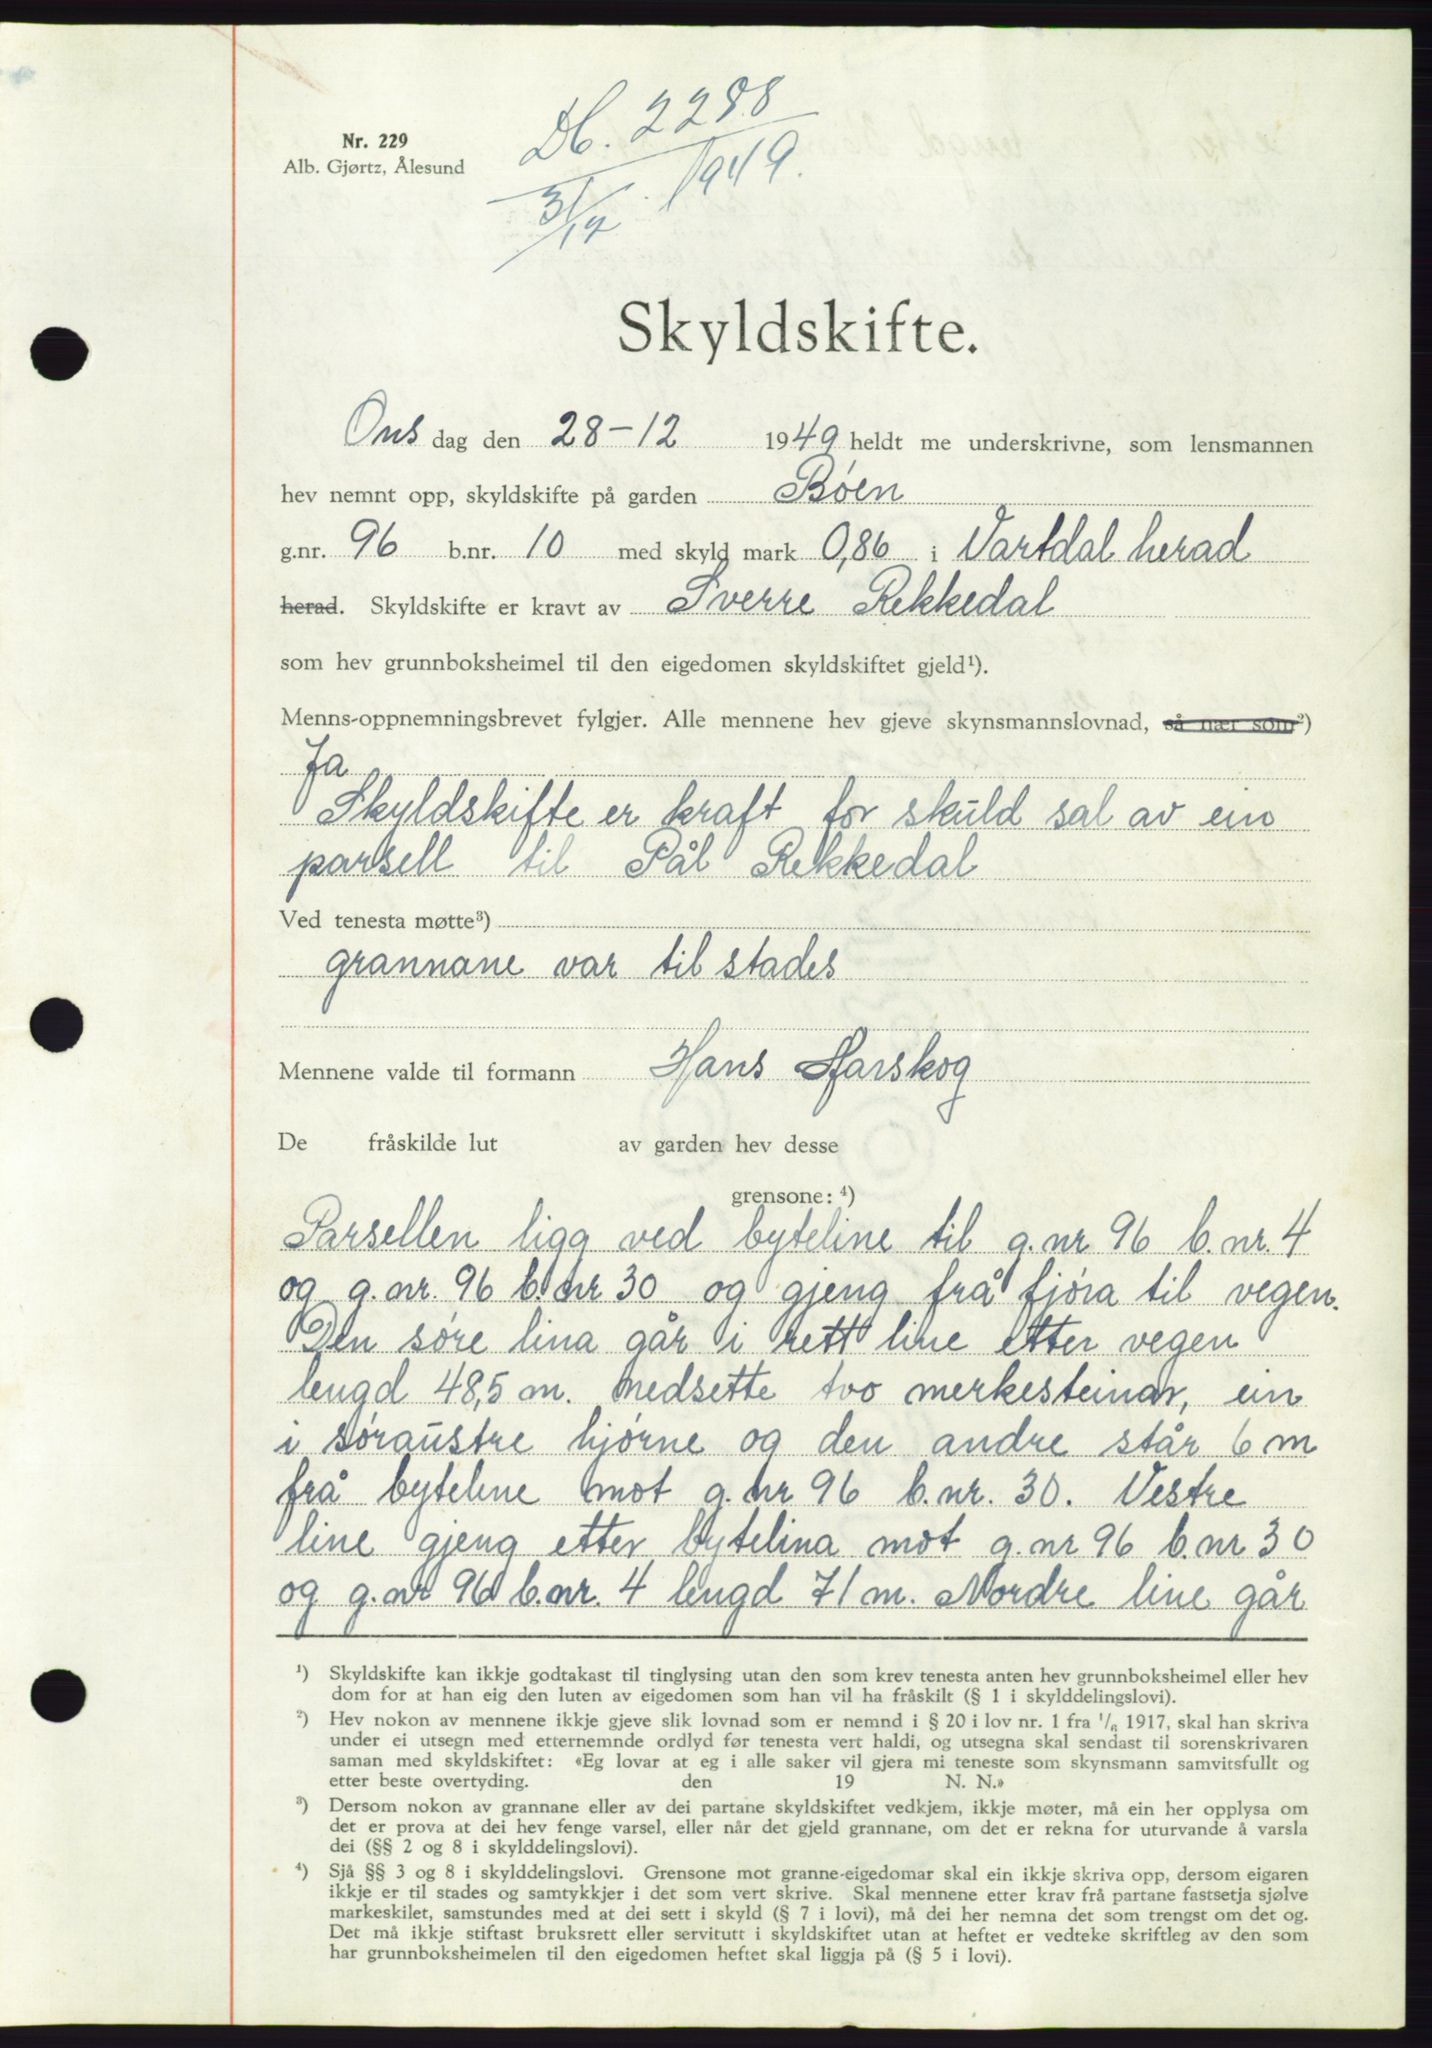 Db. 2288
Nr. 229
Alb. Gjørtz, Ålesund
31/12 . 1949.
Skyldskifte.
Ons dag den 28-12 1949 heldt me underskrivne, som lensmannen
hev nemnt opp, skyldskifte på garden Bóen
g.nr. 96 b.nr. 10 med skyld mark 0,86 i Vartdal herad
herad. Skyldskifte er kravt av Sverre Rekkedal
som hev grunnboksheimel til den eigedomen skyldskiftet gjeld¹).
Menns-oppnemningsbrevet fylgjer. Alle mennene hev gjeve skynsmannslovnad, så nær som²)
Ja
Skyldskifte er kraft for skuld sal av ein
parsell til Pål Rekkedal
Ved tenesta møtte³)
grannane var til stades
Mennene valde til formann Hans Aarskog
De fråskilde lut av garden hev desse
grensone: ⁴)
Parsellen ligg ved byteline til g.nr 96 b.nr. 4
og g.nr. 96 b.nr 30 og gjeng frå fjóra til vegen.
Den sóre lina går i rett line etter vegen
lengd 48,5 m. nedsette tvo merkesteinar, ein
i sóraustre hjórne og den andre står 6 m
frå byteline mot g.nr 96 b.nr. 30. Vestre
line gjeng etter bytelina mot g.nr 96 b.nr 30
og g.nr 96 b.nr. 4 lengd 71 m. Nordre line går
¹) Skyldskifte kan ikkje godtakast til tinglysing utan den som krev tenesta anten hev grunnboksheimel eller hev
dom for at han eig den luten av eigedomen som han vil ha fråskilt (§ 1 i skylddelingslovi).
²) Hev nokon av mennene ikkje gjeve slik lovnad som er nemnd i § 20 i lov nr. 1 fra ¹/₆ 1917, skal han skriva
under ei utsegn med etternemnde ordlyd før tenesta vert haldi, og utsegna skal sendast til sorenskrivaren
saman med skyldskiftet: «Eg lovar at eg i alle saker vil gjera mi teneste som skynsmann samvitsfullt og
etter beste overtyding. den 19 N. N.»
³) Dersom nokon av grannane eller av dei partane skyldskiftet vedkjem, ikkje møter, må ein her opplysa om
det er prova at dei hev fenge varsel, eller når det gjeld grannane, om det er rekna for uturvande å varsla
dei (§§ 2 og 8 i skylddelingslovi).
⁴) Sjå §§ 3 og 8 i skylddelingslovi. Grensone mot granne-eigedomar skal ein ikkje skriva opp, dersom eigaren
ikkje er til stades og samtykkjer i det som vert skrive. Skal mennene etter krav frå partane fastsetja sjølve
markeskilet, samstundes med at dei sett i skyld (§ 7 i lovi), må dei her nemna det som trengst om det og.
Det må ikkje stiftast bruksrett eller servitutt i skyldskiftet utan at heftet er vedteke skriftleg av den som
har grunnboksheimelen til den eigedomen heftet skal liggja på (§ 5 i lovi).